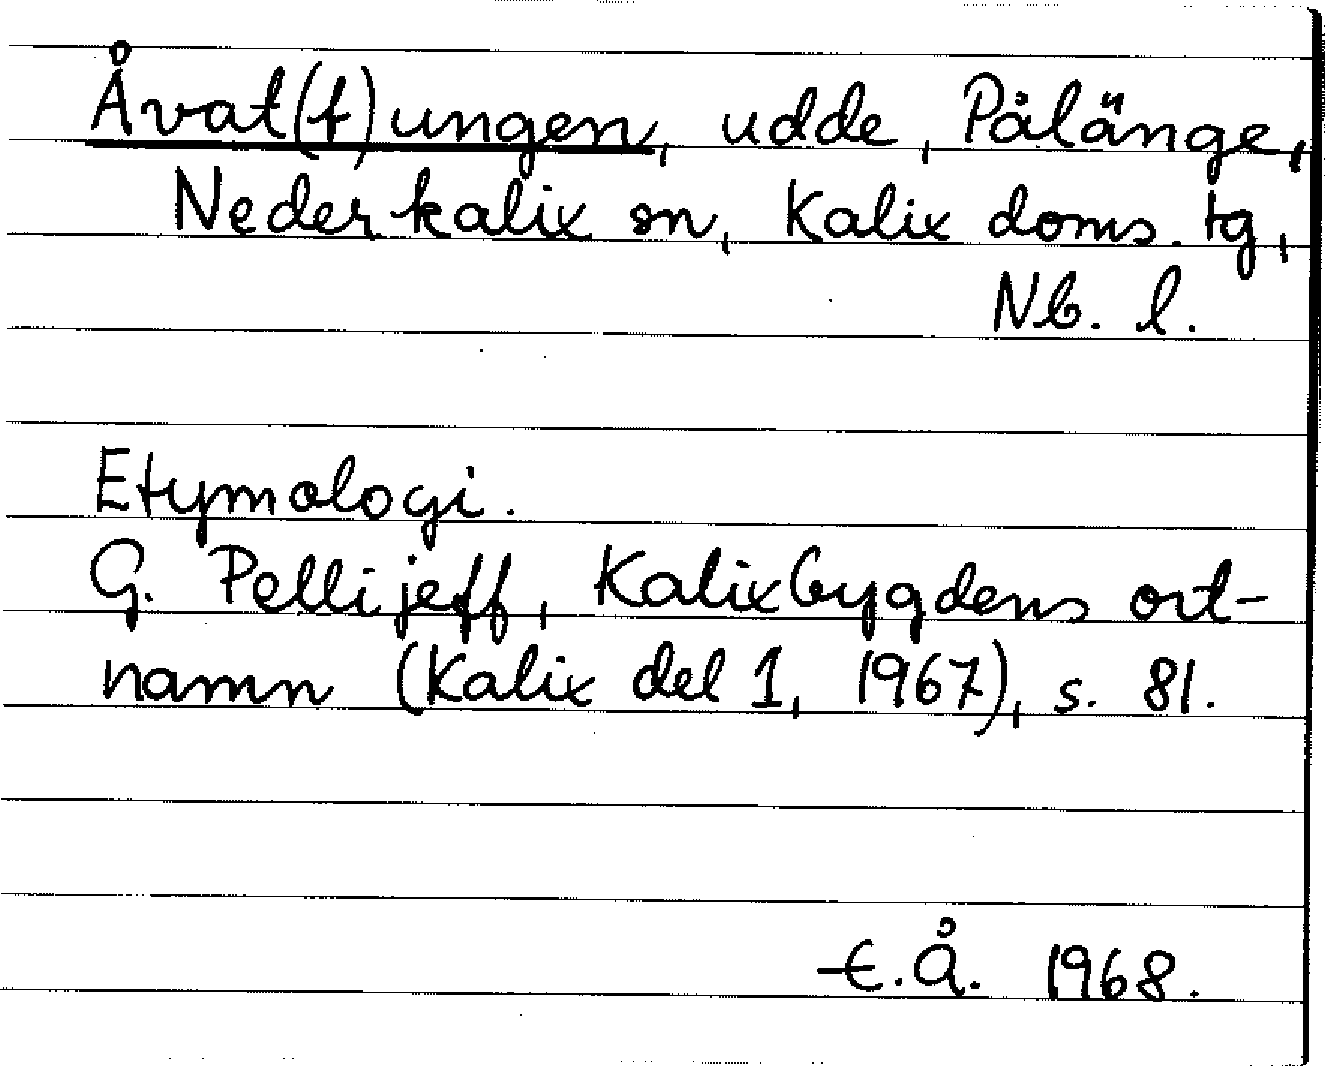 Åvat(t)ungen, udde, Pålänge,
Nederkalix sn, Kalix doms. tg,
Nb. l.
Etymologi.
G. Pellijeff, Kalixbygdens ort-
namn (Kalix del 1, 1967), s. 81.
E.Å. 1968.